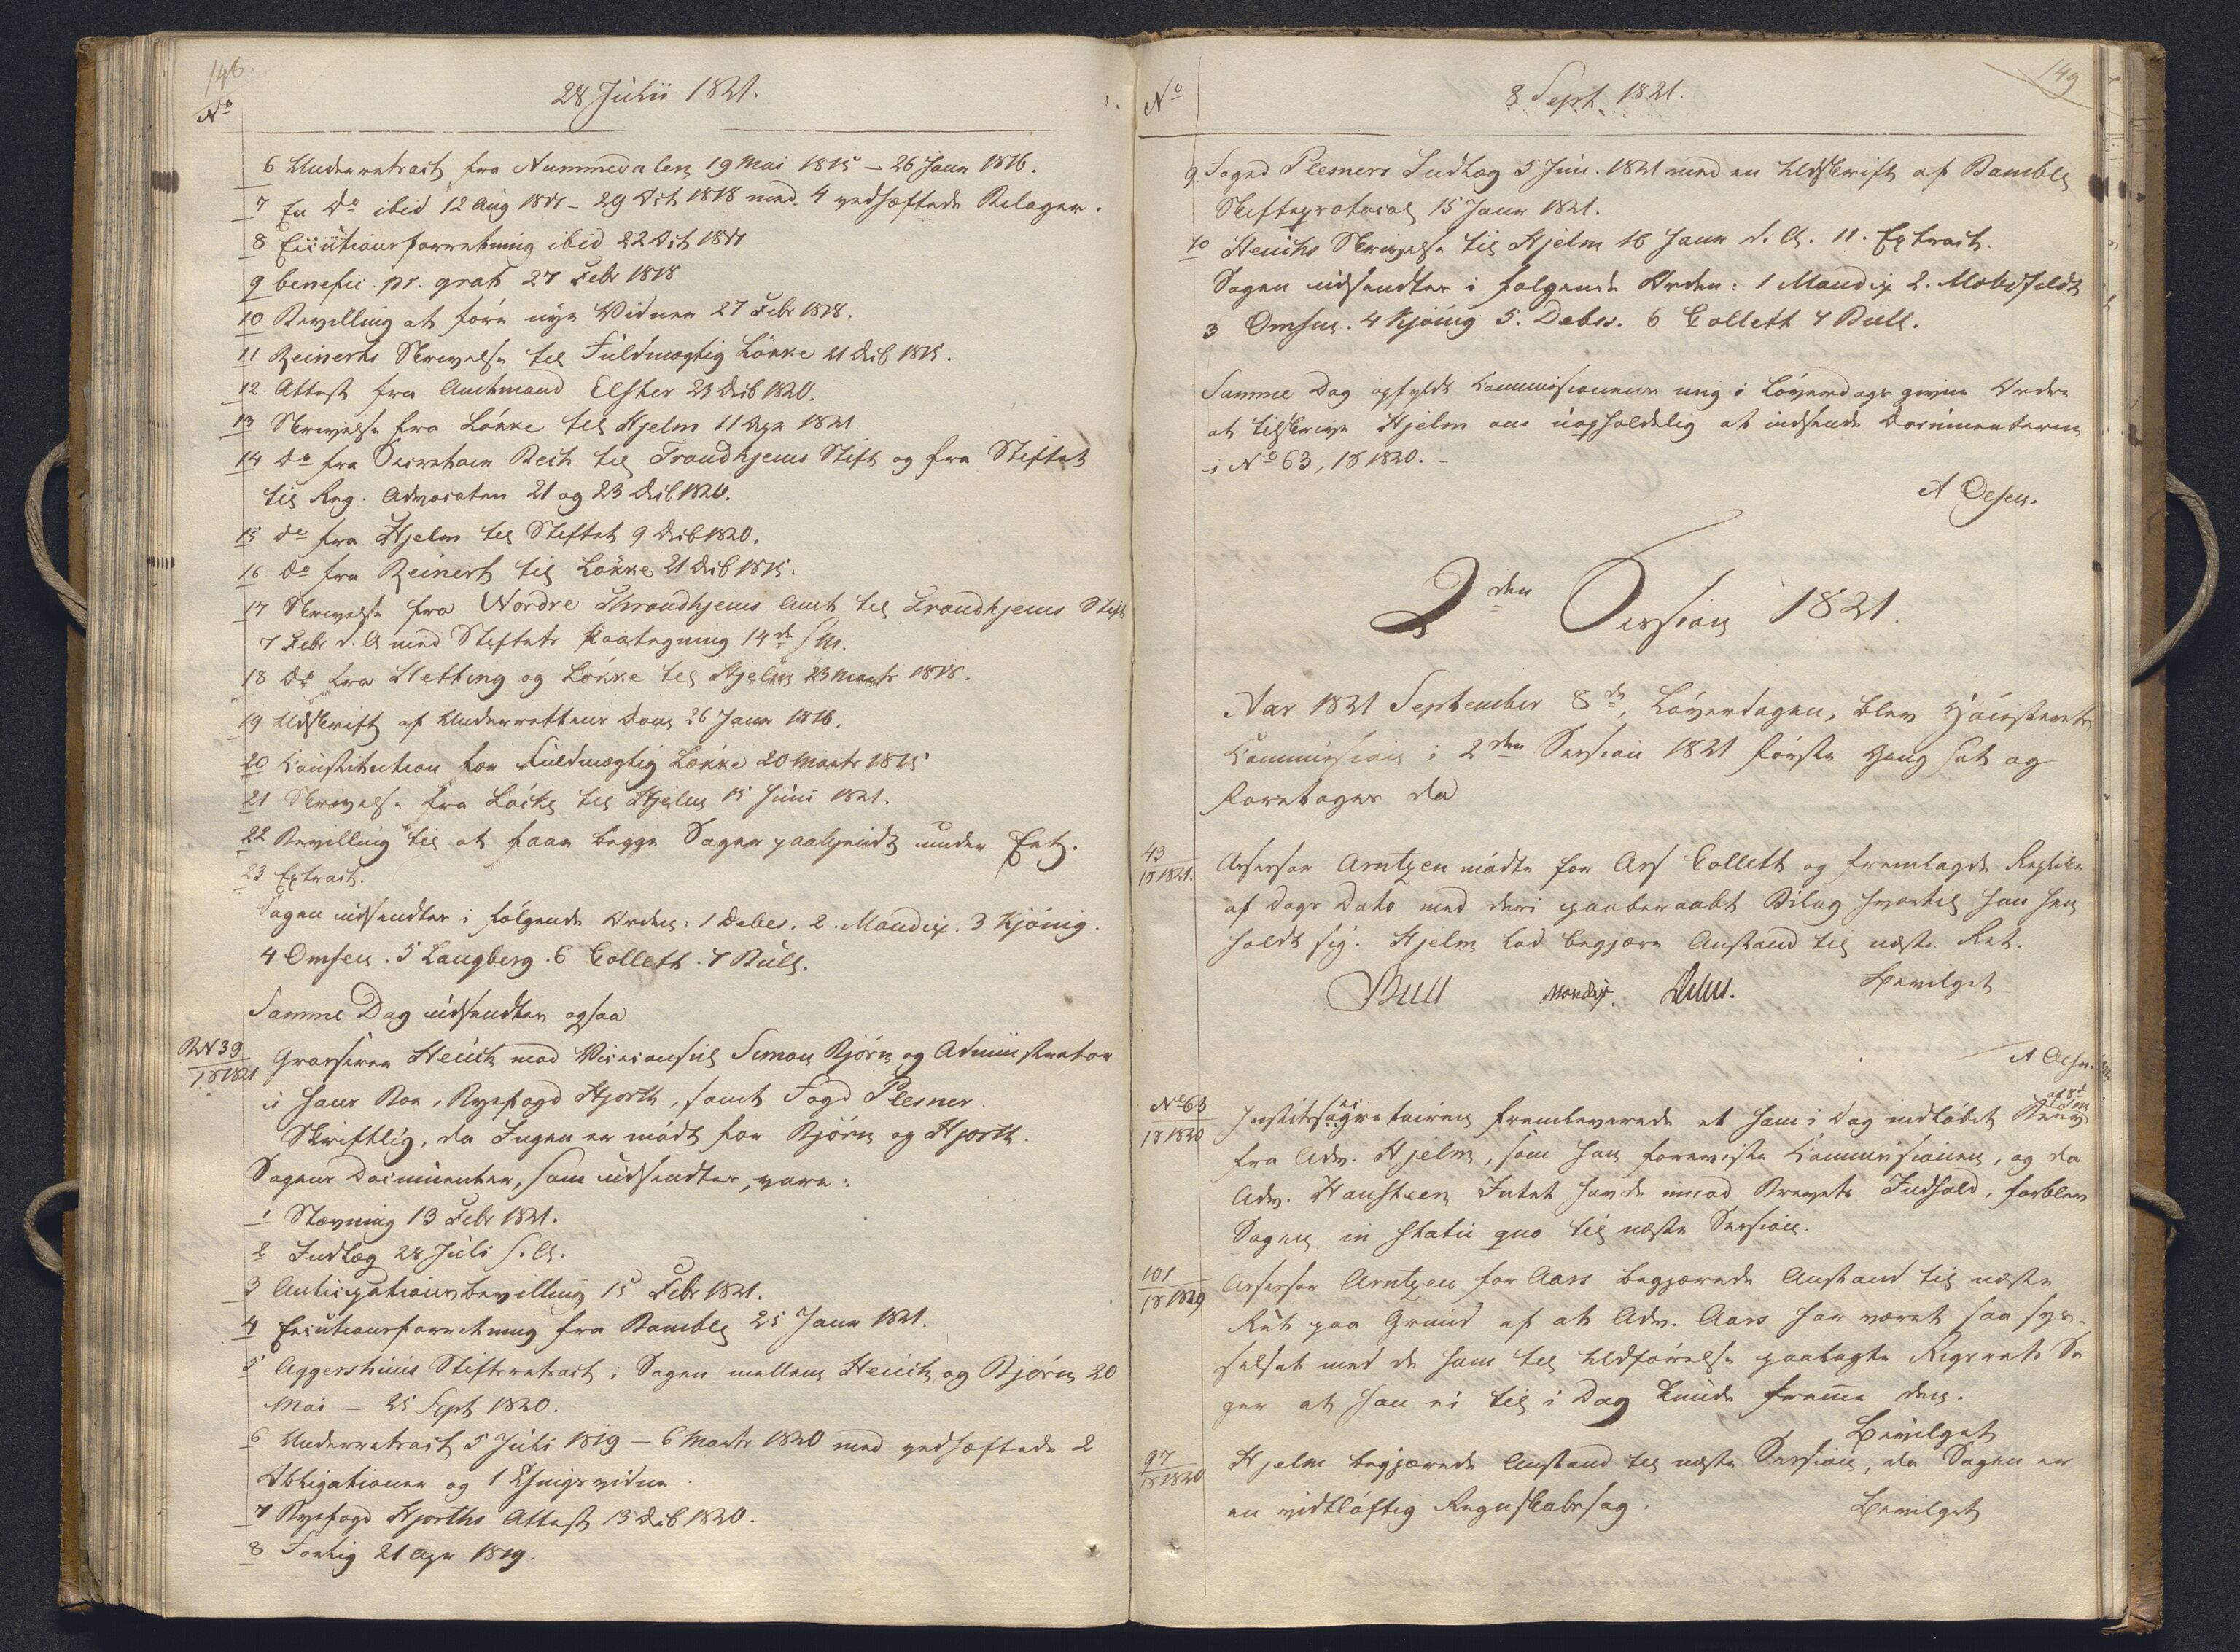 146.
No
28 Julii 1821.
6 Underretsact fra Nummedalen 19 Mai 1815 – 26 Janr 1816.
7 En do ibid 12 Aug 1817 – 29 Oct 1818 med 4 vedhæftede Bilager.
8 Executionsforretning ibid 22 Oct 1817
9 benefic. pr. grat 27 Febr 1818
10 Bevilling at føre nye Vidner 27 Febr 1818.
11 Reinerts Skrivelse til Fuldmægtig Løkke 21 Decb 1815.
12 Attest fra Amtmand Elster 23 Decb 1820.
13 Skrivelse fra Løkke til Hjelm 11 Apr 1821.
14 do fra Bech til Trondhjems Stift og fra Stiftet
til Reg. Advocaten 21 og 23 Decb 1820.
15 do fra Hjelm til Stiftet 9 Decb 1820.
16 do fra Reinert til Løkke 21 Decb 1815.
17 Skrivelse fra Nordre Throndhjems Amt til Trondhjems Stift
7 Febr d. A. med Stiftets Paategning 14de s. M.
18 do fra Hetting og Løkke til Hjelm 23 Marts 1818.
19 Udskrift af Underrettens Dom 26 Janr 1816.
20 Constitution for Fuldmægtig Løkke 20 Marts 1815
21 Skrivelse fra Løcke til Hjelm 15 Juni 1821.
22 Bevilling til at faae begge Sager paakjendt under Eet.
23 Extract.
Sagen udsendtes i følgende Orden: 1 Debes. 2. Mandix. 3 Kjønig.
4 Omsen. 5 Langberg. 6 Collett. 7 Bull.
Samme Dag udsendtes ogsaa
39
18 1821 Grosserer Heuch mod Viceconsul Simon Bjørn og Administrator
i hans Boe, Byefogd Hjorth, samt Fogd Plesner.
Skriftlig, da Ingen er mødt for Bjørn og Hjorth.
Sagens Documenter, som udsendtes, vare:
1 Stævning 13 Febr 1821.
2 Indlæg 28 Juli s. A.
3 Anticipationsbevilling 15 Febr 1821.
4 Executionsforretning fra Bamble 25 Janr 1821.
5 Aggershuus Stiftsretsact i Sagen mellem Heuch og Bjørn 20
Mai – 25 Sept 1820.
6 Underretsact 5 Juli 1819 – 6 Marts 1820 med vedhæftede 2
Obligationer og 1 Thingsvidne.
7 Byefogd Hjorths Attest 13 Decb 1820.
8 Forlig 21 Apr 1819.
149
No
8 Sept. 1821.
9. Foged Plesners Indlæg 5 Jun. 1821 med en Udskrift af Bamble
Skifteprotocol 15 Janr 1821.
10 Heuchs Skrivelse til Hjelm 16 Janr d. A. 11. Extract.
Sagen udsendtes i følgende Orden: 1 Mandix 2. Motzfeldt
3 Omsen. 4 Kjønig 5. Debes. 6 Collett 7 Bull.
Samme Dag opfyldt Commissionens mig i Løverdags givne Ordre
at tilskrive Hjelm om uopholdelig at indsende Documenterne
i No 63, 18 1820. –
A Olsen.
2den Session 1821.
Aar 1821 September 8de, Løverdagen, blev Høiesterets
Commission i 2den Session 1821 første Gang sat og
foretoges da
43
18 1821. Assessor Arntzen mødte for Ass Collett og fremlagde Replik
af Dags Dato med deri paaberaabt Bilag hvortil han hen
holdt sig. Hjelm lod begjære Anstand til næste Ret.
Bevilget
Bull Mandix. Debes.
A Olsen.
No 63
18 1820 Justitssecretairen fremleverede et ham i Dag indløbet Brev af 8de d. M.
fra Adv. Hjelm, som han foreviste Commissionen, og da
Adv. Hansteen Intet havde imod Brevets Indhold, forblev
Sagen in statu quo til næste Session.
101
18 1819 Assessor Arntzen for Aars begjærede Anstand til næste
Ret paa Grund af at Adv. Aars har været saa sys-
selsat med de ham til Udførelse paalagte Rigsrets Sa
ger at han ei til i Dag kunde fremme den.
Bevilget
97
18 1820 Hjelm begjærede Anstand til næste Session, da Sagen er
en vidtløftig Regnskabssag.
Bevilget